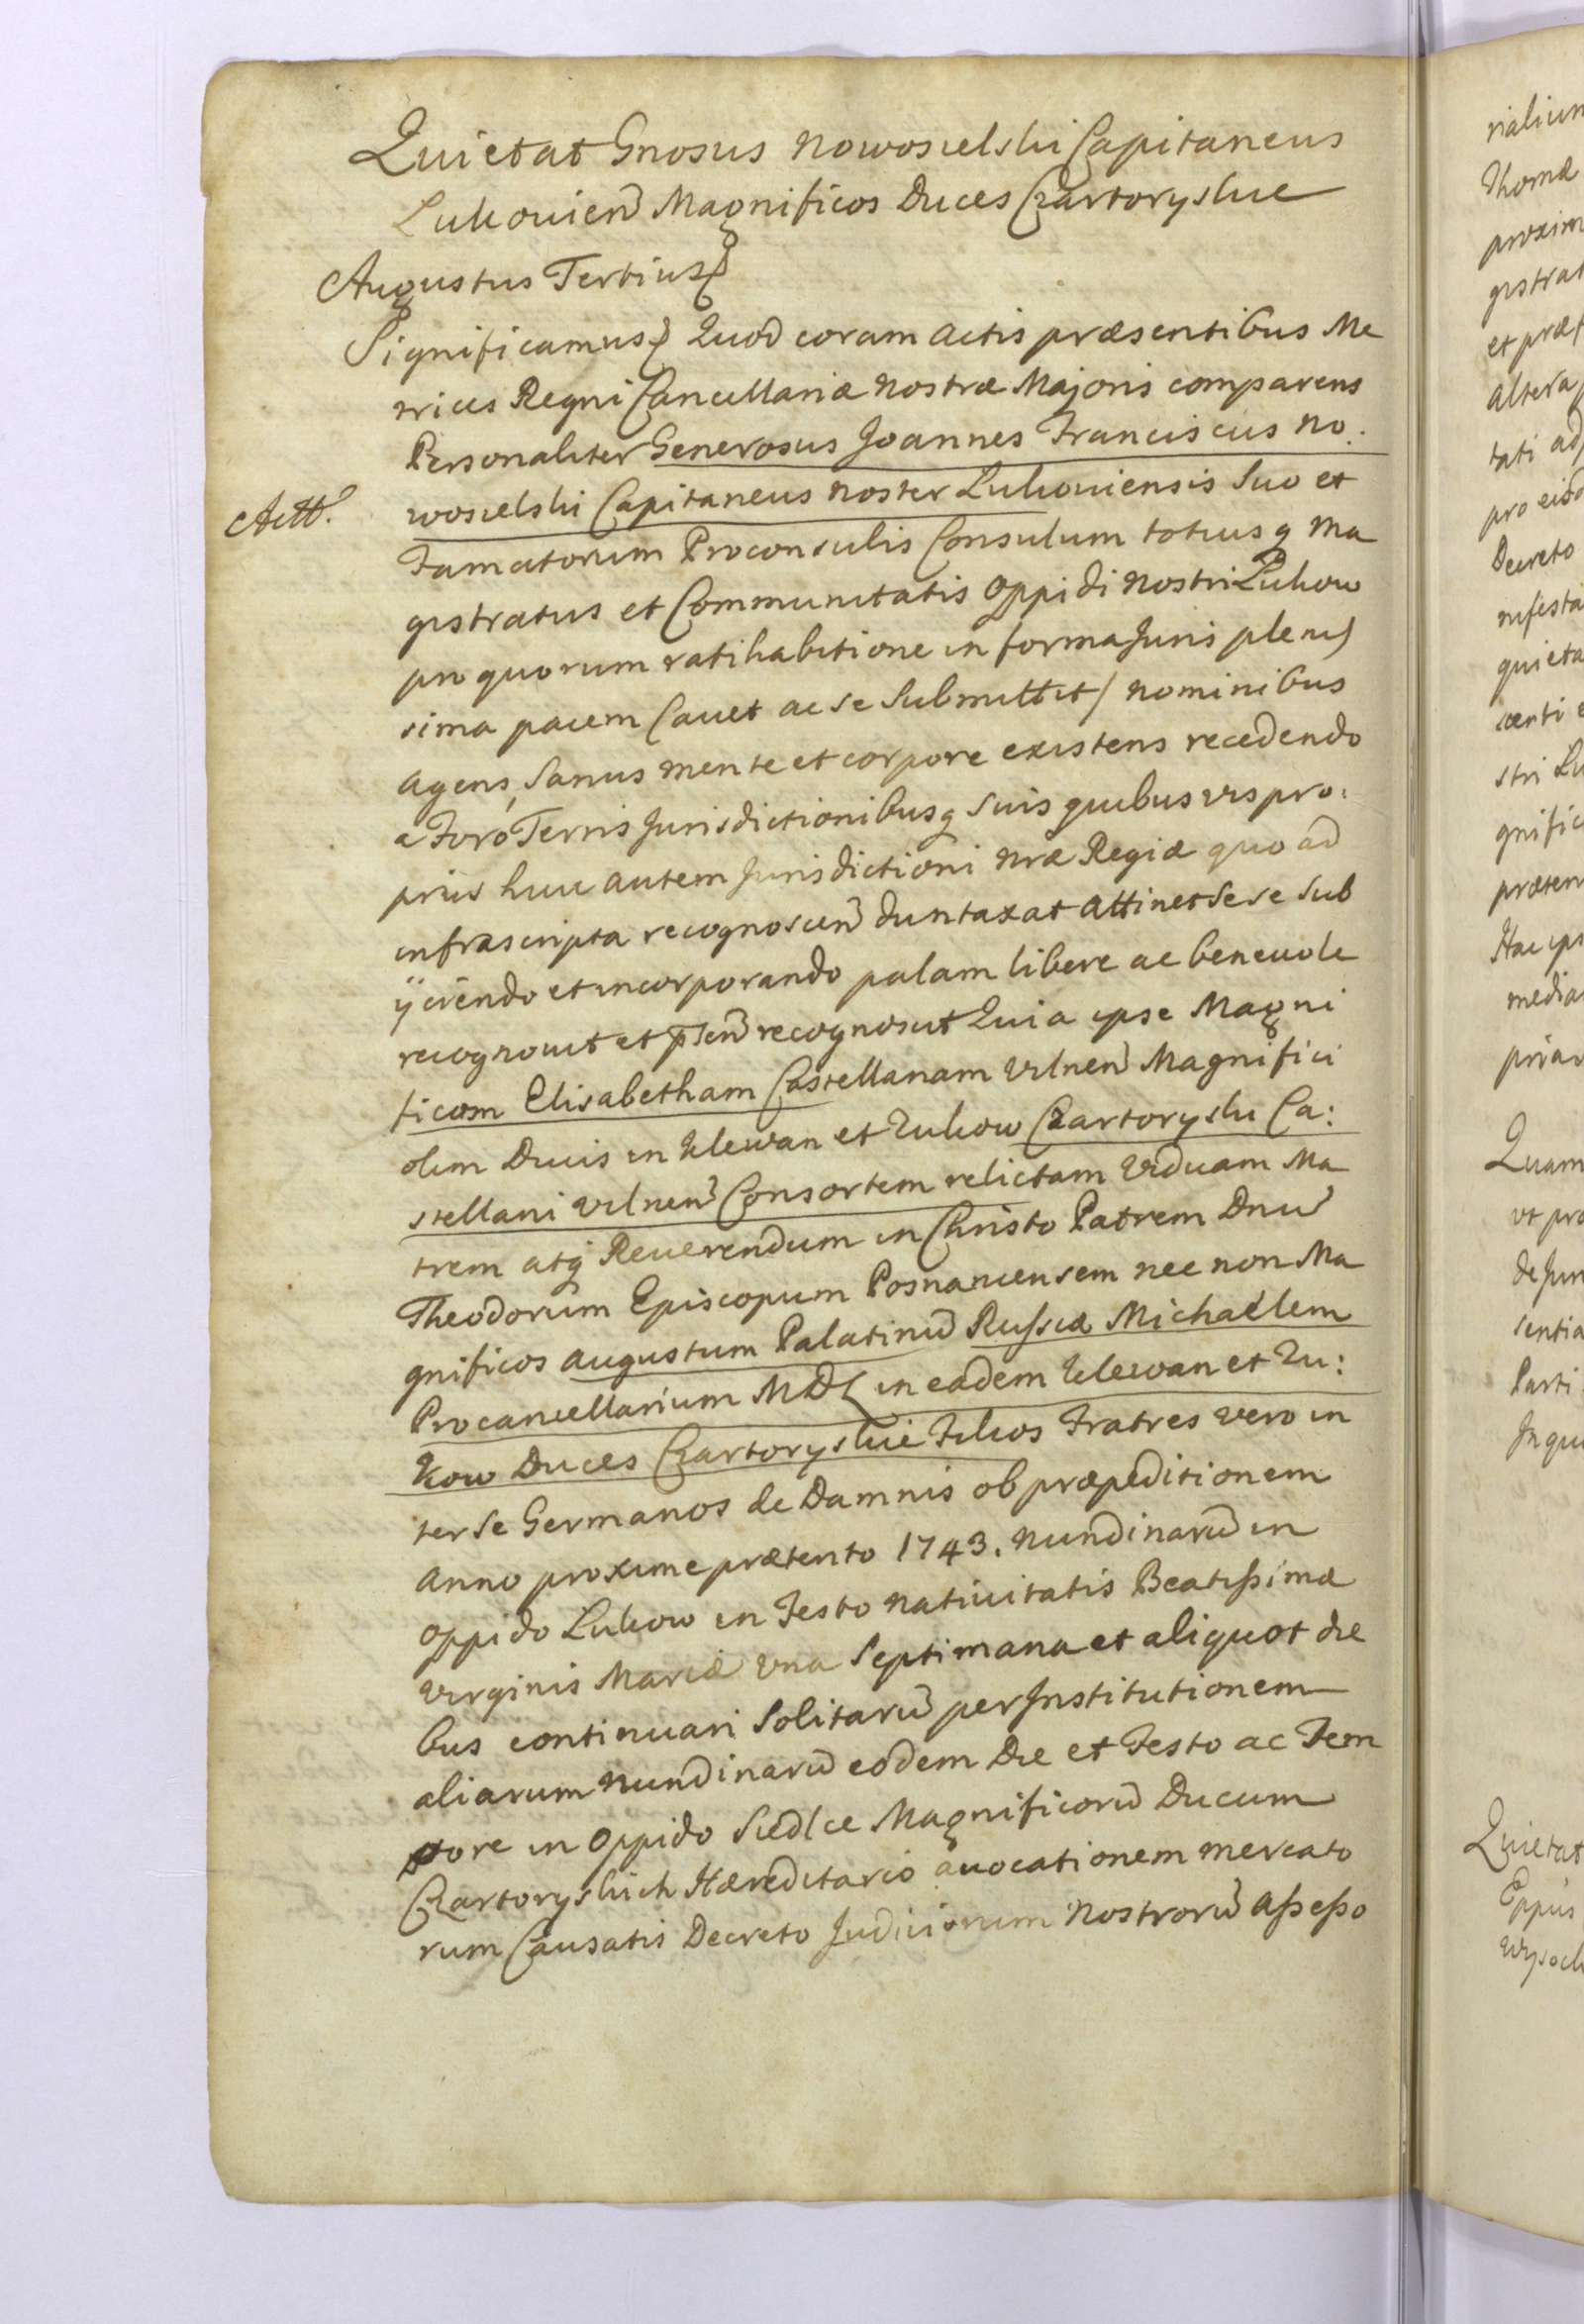 Quietat Gnosus Nowosielski Capitaneus
Lukouien Magnificos Duces Czartoryskie
Augustus Tertius
Significamus Quod coram Actis præsentibus Me
trices Regni Cancellariæ Nostræ Majoris comparens
Personaliter Generosus Joannes Franciscus No:
Actt.
wosielski Capitaneus Noster Lukouiensis Suo et
Famatorum Proconsulis Consulum totiusq Ma
gistratus et Communitatis Oppidi Nostri Lukow
pro quorum ratihabitione in forma Juris plenis
sima pacem Cauet ac se Submittit/ Nominibus
Agens, Sanus mente et corpore existens recedendo
a Foro Terris Jurisdictionibusq Suis quibusvis pro:
prijs huic autem Jurisdictioni Nræ Regiæ quo ad
infrascripta recognoscen duntaxat Attinet Sese Sub
ijciendo et incorporando palam libere ac beneuole
recognouit et psen recognoscit Quia ipse Magni
ficam Elisabetham Castellanam Vilnen Magnifici
olim Ducis in Klewan et Zukow Czartoryski Ca:
stellani Vilnen Consortem relictam Viduam Ma
trem atq Reuerendum in Christo Patrem Dnu
Theodorum Episcopum Posnaniensem nec non Ma
gnificos Augustum Palatinu Russiæ Michaelem
Procancellarium MDL in eadem Klewan et Zu:
kow Duces Czartoryskie Filios Fratres vero in
ter Se Germanos de Damnis ob præpeditionem
Anno proxime prætento 1743. Nundinaru in
Oppido Lukow in Festo Natiuitatis Beatissimæ
Virginis Mariæ Vna Septimana et aliquot die
bus continuari Solitaru per Institutionem
aliarum Nundinaru eodem Die et Festo ac Tem
pore in Oppido Siedlce Magnificoru Ducum
Czartoryskich Hæreditario auocationem mercato
rum Causatis Decreto Judiciorum Nostroru Assesso